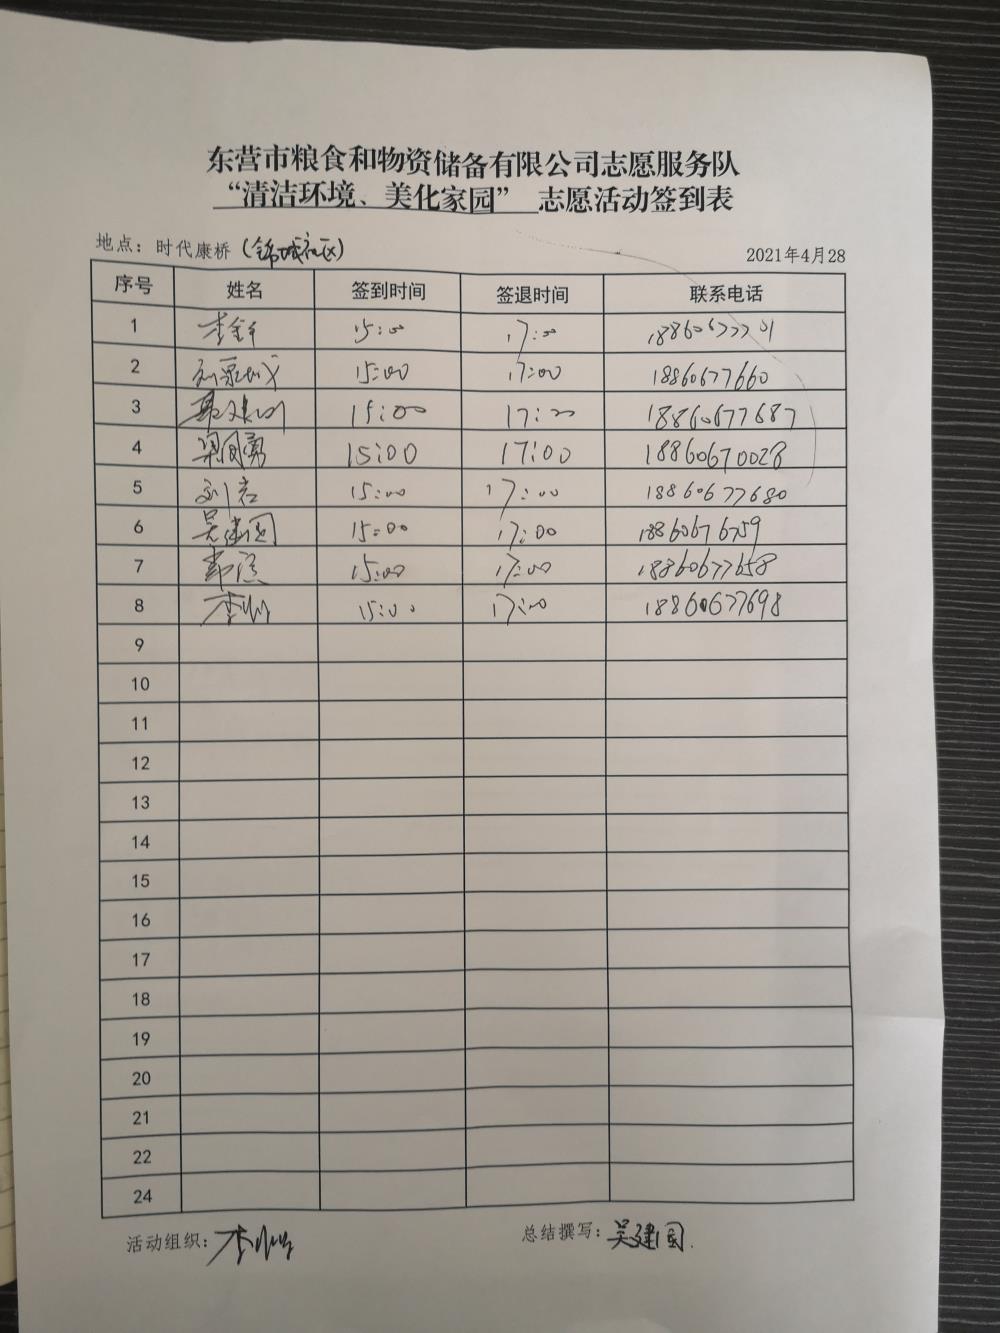 东营市粮食和物资储备有限公司志愿服务队
“清洁环境、美化家园” 志愿活动签到表
地点：时代康桥（锦城社区） 2021年4月28
序号 姓名 签到时间 签退时间 联系电话
1 15:00 17:00
2 15:00 17:00 18860677660
3 15:00 17:00 18860677687
4 梁国勇 15:00 17:00 18860670028
5 刘岩 15:00 17:00 18860677680
6 吴建国 15:00 17:00 18860676759
7 15:00 17:00 18860677658
8 15:00 17:00 18860677698
9
10
11
12
13
14
15
16
17
18
19
20
21
22
24
活动组织： 总结撰写：吴建国.